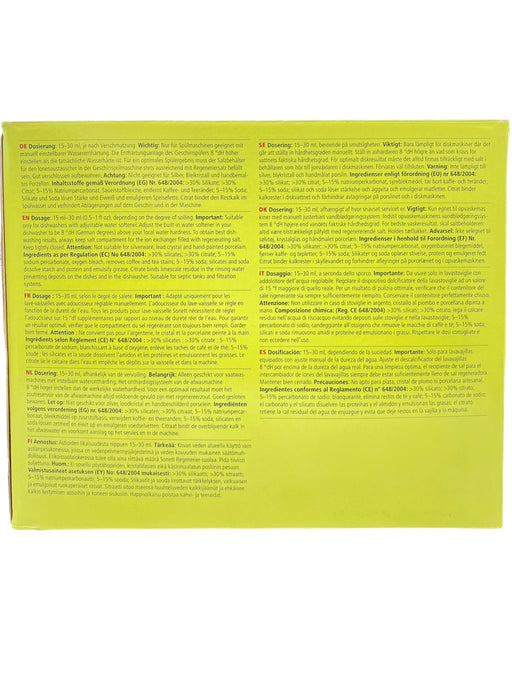 DE Dosierung: 15–30 ml, je nach Verschmutzung. Wichtig: Nur für Spülmaschinen geeignet mit
manuell einstellbarer Wasserenthärtung. Die Enthärtungsanlage des Geschirrspülers 8 °dH höher
einstellen als die tatsächliche Wasserhärte ist. Für ein optimales Spülergebnis muss der Salzbehälter
für den Ionenaustauscher stets ausreichend mit Regeneriersalz befüllt
sein. Gut verschlossen aufbewahren. Achtung: Nicht geeignet für Silber, Bleikristall und handbemal-
tes Porzellan. Inhaltsstoffe gemäß Verordnung (EG) Nr. 648/2004: >30% Silikate; >30%
Citrat; 5–15% Natriumpercarbonat, Sauerstoffbleiche, entfernt Kaffee- und Teeränder; 5–15% Soda;
Silikate und Soda lösen Stärke und Eiweiß und emulgieren Speisefette. Citrat bindet den Restkalk im
Spülwasser und verhindert Ablagerungen auf dem Geschirr und in der Maschine.
EN Dosage: 15 ml–30 ml (0.5–1 fl oz), depending on the degree of soiling. Important: Suitable
only for dishwashers with adjustable water softener. Adjust the built in water softener in your
dishwasher to be 8 °dH (German degrees) above your local water hardness. To obtain best dish-
washing results, always keep salt compartment for the ion exchanger filled with regenerating salt.
Keep tightly closed. Attention: Not suitable for silverware, lead crystal and hand painted porcelain.
Ingredients as per Regulation (EC) No 648/2004: >30% silicates; >30% citrate; 5–15%
sodium percarbonate, oxygen bleach, removes coffee and tea stains; 5–15% soda; silicates and soda
dissolve starch and protein and emulsify grease. Citrate binds limescale residue in the rinsing water
preventing deposits on the dishes and in the dishwasher. Suitable for septic tanks and filtration
systems.
FR Dosage : 15–30 ml, selon le degré de saleté. Important : Adapté uniquement pour les
lave-vaisselle avec adoucisseur réglable manuellement. L'adoucisseur du lave-vaisselle se règle en
fonction de la dureté de l'eau. Tous les produits pour lave-vaisselle Sonett nécessitent de régler
l'adoucisseur sur 15 °df supplémentaires par rapport au niveau de dureté réel de l'eau. Pour garantir
un résultat optimal, vérifier que le compartiment du sel régénérant soit toujours bien rempli. Garder
bien fermé. Attention : Ne convient pas pour l'argenterie, le cristal et la porcelaine peinte à la main.
Ingrédients selon Règlement (CE) N° 648/2004 : >30% silicates ; >30% citrate ; 5–15%
percarbonate de sodium, blanchissant à base d'oxygène, enlève les taches de café et de thé; 5–15%
soude ; les silicates et la soude dissolvent l'amidon et les protéines et émulsionnent les graisses. Le
citrate lie le calcaire et empêche les dépôts sur la vaisselle et dans la machine.
NL Dosering: 15–30 ml, afhankelijk van de vervuiling. Belangrijk: Alleen geschikt voor vaatwas-
machines met instelbare waterontharding. Het onthardingssysteem van de afwasmachine
8 °dH hoger instellen dan de werkelijke waterhardheid. Voor een optimaal resultaat moet het
zoutreservoir van de afwasmachine altijd voldoende gevuld zijn met regenereerzout. Goed gesloten
bewaren. Let op: Niet geschikt voor zilver, loodkristal en handbeschilderd porselein. Ingrediënten
volgens verordening (EG) nr. 648/2004: >30% silicaten; >30% citraat; 5–15% natriumpercar-
bonaat, bleekmiddel op zuurstofbasis, verwijdert koffie- en theeranden; 5–15% soda; silicaten en
soda lossen zetmeel en eiwit op en emulgeren voedselvetten. Citraat bindt de overblijvende kalk in
het afwaswater en voorkomt aanslag op het servies en in de machine.
FI Annostus: Astioiden likaisuudesta riippuen 15–30 ml. Tärkeää: Kovan veden alueella käyttö vain
astianpesukoneissa, joissa on vedenpehmennysjärjestelmä ja veden kovuuden mukainen säätömah-
dollisuus. Erikoissuolakoneissa tulee olla aina riittävä määrä Sonett Regenerier-suolaa. Pidä tiiviisti
suljettuna. Huom.: Ei sovellu pöytähopeiden, kristallilasien eikä käsinmaalatun posliinin pesuun.
Valmistusaineet asetuksen (EY) No: 648/2004 mukaisesti: >30% silikaatti; >30% sitraatti;
5–15% Natriumperkarbonaatti; 5–15% sooda; Silikaatit ja sooda irrottavat tärkkelyksen, valkuaisen
ja emulgoivat ruokaperäiset rasvat. Sitraatti sitoo itseensä huuhteluveden kalkkijäämät ja ehkäisee
kalkin kertymisen astioihin ja koneen sisäosiin. Happivalkaisu poistaa kahvi- ja teetahrat.
SE Dosering: 15–30 ml, beroende på smutsigheten. Viktigt: Bara lämpligt för diskmaskiner där det
går att ställa in hårdhetsgraden manuellt. Ställ in avhärdaren 8 °dH högre än vad som krävs för
vattnets faktiska hårdhetsgrad. För optimalt diskresultat måste det alltid finnas tillräckligt med salt i
behållaren med jonbytare. Förvaras väl tillsluten. Varning: Inte lämpligt till
silver, blykristall och handmålat porslin. Ingredienser enligt förordning (EU) nr 648/2004:
>30% silikater; >30% citrat; 5–15% natriumperkarbonat, syreblekmedel, tar bort kaffe- och teränder;
5–15% soda; silikat och soda löser stärkelse och äggvita och emulgerar matfetter. Citrat binder
kalkrester i diskvattnet och förhindrar avlagringar på porslinet och i diskmaskinen.
DK Dosering: 15–30 ml, afhængigt af hvor snavset servicet er. Vigtigt: Kun egnet til opvaskemas-
kiner med manuelt justerbart vandblødgøringssystem. Indstil opvaskemaskinens vandblødgøringssys-
tem 8 °dH højere end vandets faktiske hårdhed. For de bedste opvaskeresultater, skal saltbeholderen
altid være tilstrækkeligt fyldt med salt. Holdes tætlukket. Advarsel: Ikke velegnet til
sølvtøj, krystalglas og håndmalet porcelæn. Ingredienser i henhold til Forordning (EF) Nr.
648/2004: >30% silikater; >30% citrat; 5–15% natriumpercarbonat, oxygenbaseret blegemiddel,
fjerner kaffe- og tepletter; 5–15% soda; Silikater og soda opløser stivelse, protein og emulgerer fedt.
Citrat binder kalkrester i skyllevandet og forhindrer aflejringer på porcelænet og i opvaskemaskinen.
IT Dosaggio: 15–30 ml, a seconda dello sporco. Importante: Da usare solo in lavastoviglie con
addolcitore dell'acqua regolabile. Regolare il dispositivo dolcificatore della lavastoviglie ad un valore
di 15 °f maggiore di quello reale. Per un risultato di pulizia ottimale, verificare che il contenitore del
sale rigenerante sia sempre sufficientemente riempito. Conservare il contenitore perfettamente chiuso.
Attenzione: Non utilizzare in caso di stoviglie in argento, cristallo al piombo e porcellana dipinta a
mano. Composizione chimica: (Reg. CE 648/2004) >30% silicati; >30% citrato, lega il calcare
residuo nell'acqua di risciacquo evitando depositi sulle stoviglie e nella lavastoviglie; 5–15%
percarbonato di sodio, candeggiante all'ossigeno che rimuove le macchie di caffè e tè; 5–15% soda,
silicati e soda rimuovono amido e proteine ed emulsionano i grassi. Consigliamo di rispettare e non
eccedere nell'uso.
ES Dosificación: 15–30 ml, dependiendo de la suciedad. Importante: Sólo para lavavajillas
equipados con ajuste manual de la dureza del agua. Ajuste el descalcificador del lavavajillas
8 °dH por encima de la dureza del agua real. Para una limpieza óptima, el recipiente de sal para el
intercambiador de iones del lavavajillas siempre debe estar suficientemente lleno de sal regeneradora.
Mantener bien cerrado. Precauciones: No apto para plata, cristal de plomo ni porcelana artesanal.
Ingredientes conformes al Reglamento (CE) nº 648/2004: >30% silicato; >30% citrato;
5–15% percarbonato de sodio: blanqueante, elimina restos de té y café; 5–15% carbonato de sodio;
el carbonato y el silicato disuelven las proteínas y el almidón y emulsionan las grasas; el citrato
retiene la cal residual del agua de enjuague y evita que deje restos en la vajilla y la máquina.